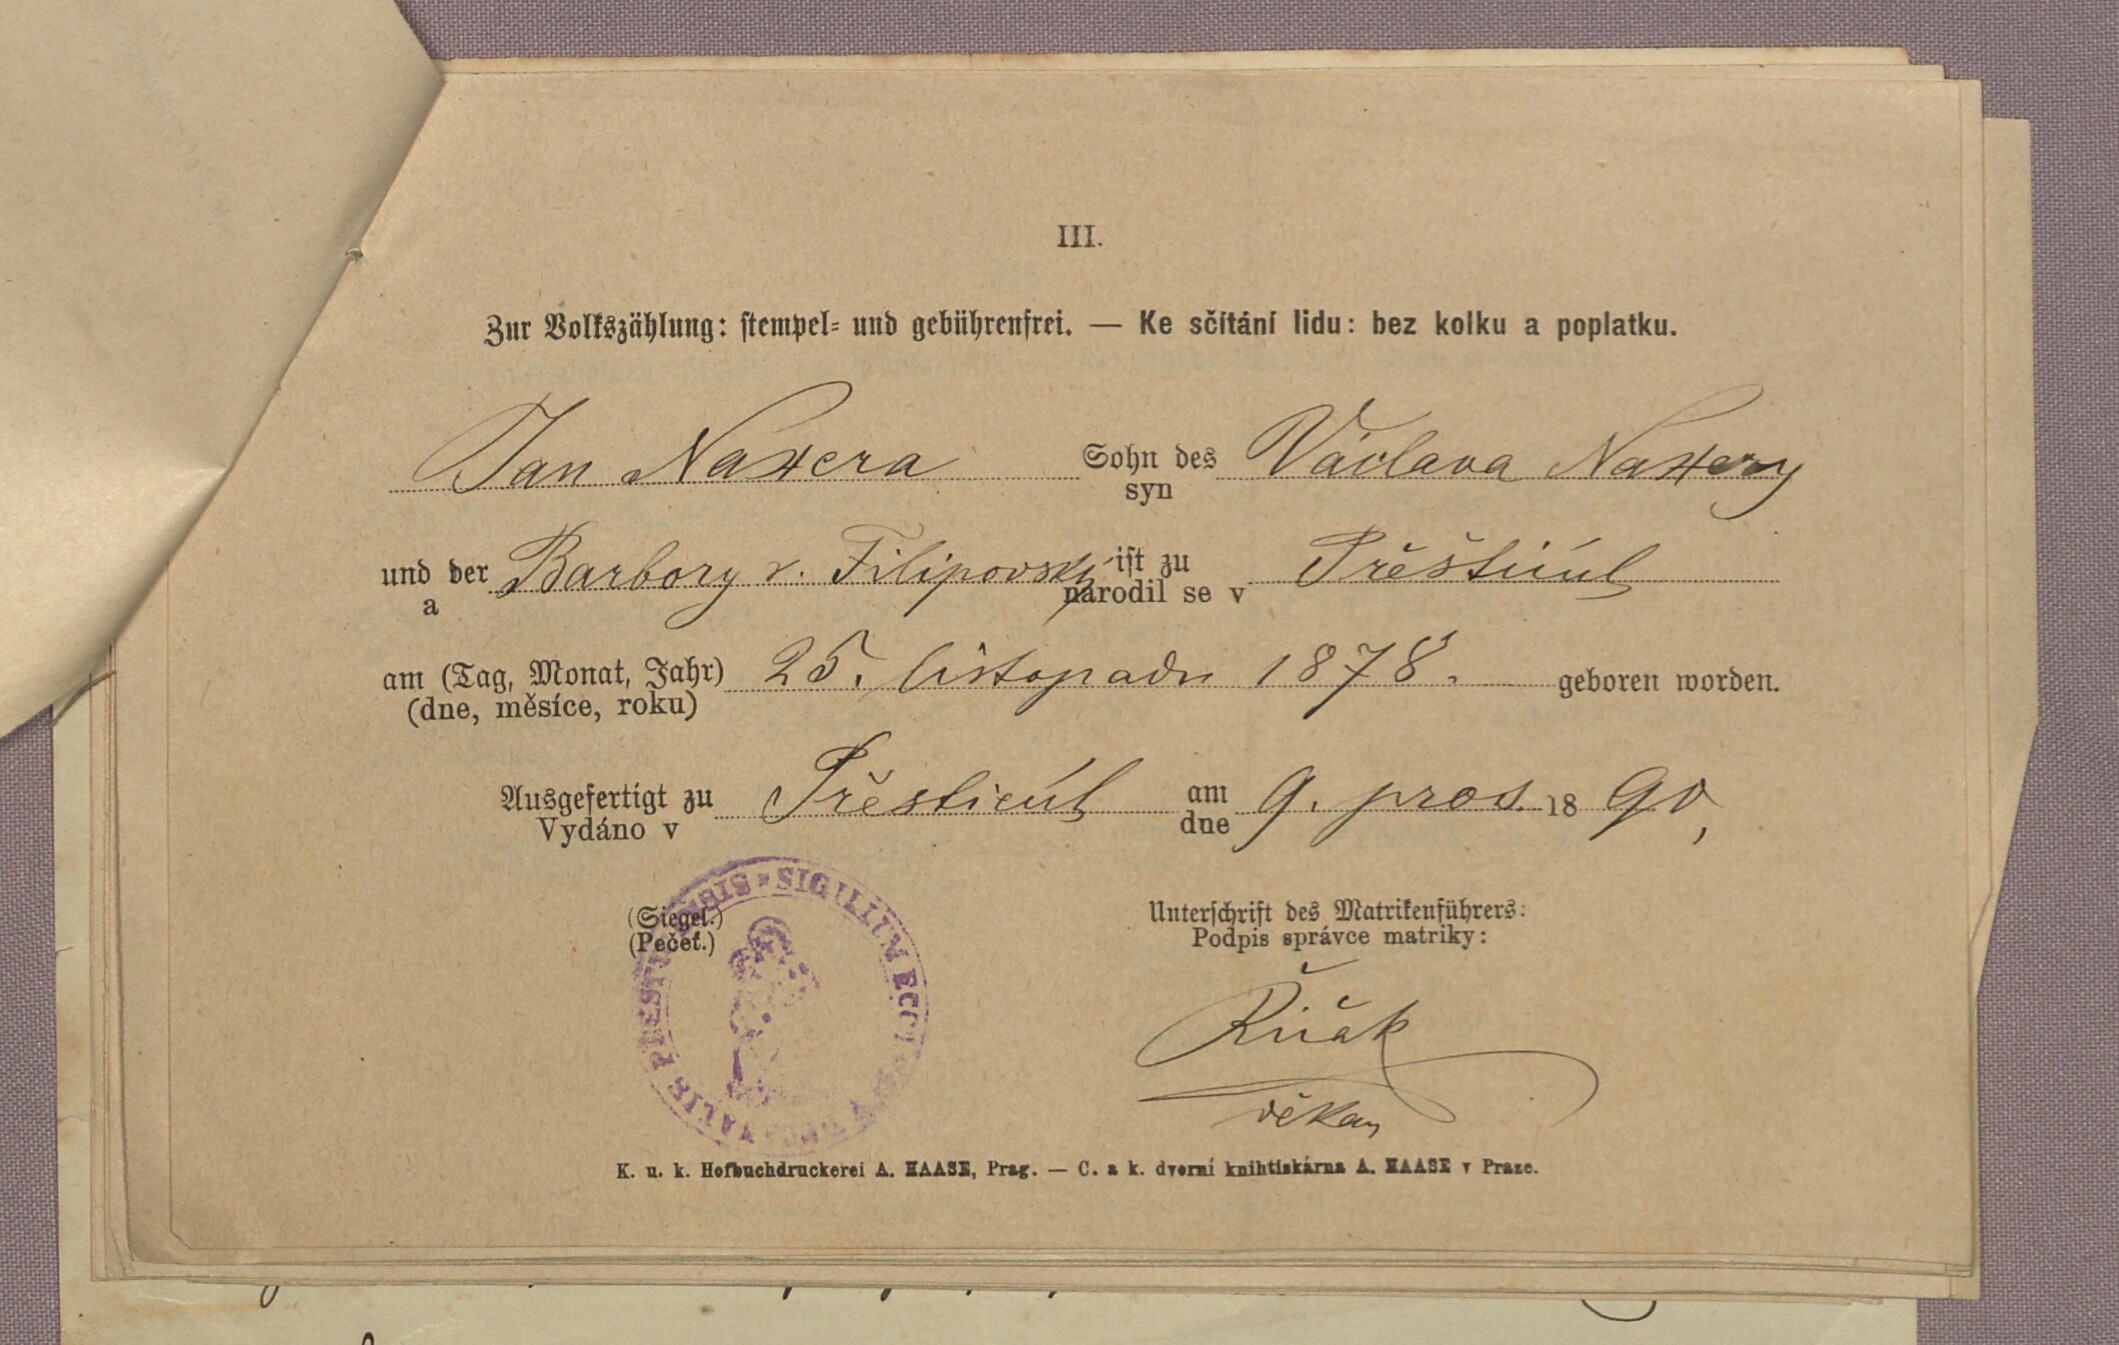 III.
Zur Volkszählung: stempel- und gebührenfrei. — Ke sčítání lidu: bez kolku a poplatku.
Jan Naxera Sohn des Václava Naxery
syn
und der Barbory r. Filipovský ist zu Přešticích
a narodil se v
am (Tag, Monat, Jahr) 25. listopadu 1878. geboren worden.
(dne, měsíce, roku)
Ausgefertigt zu Přešticích am 9. pros. 1890,
Vydáno v dne
(Siegel.) Unterschrift des Matrikenführers:
(Pečeť.) Podpis správce matriky:
SIGILLUM
Řičák
děkan
K. u. k. Hofbuchdruckerei A. HAASE, Prag. — C. a k. dvorní knihtiskárna A. HAASE v Praze.